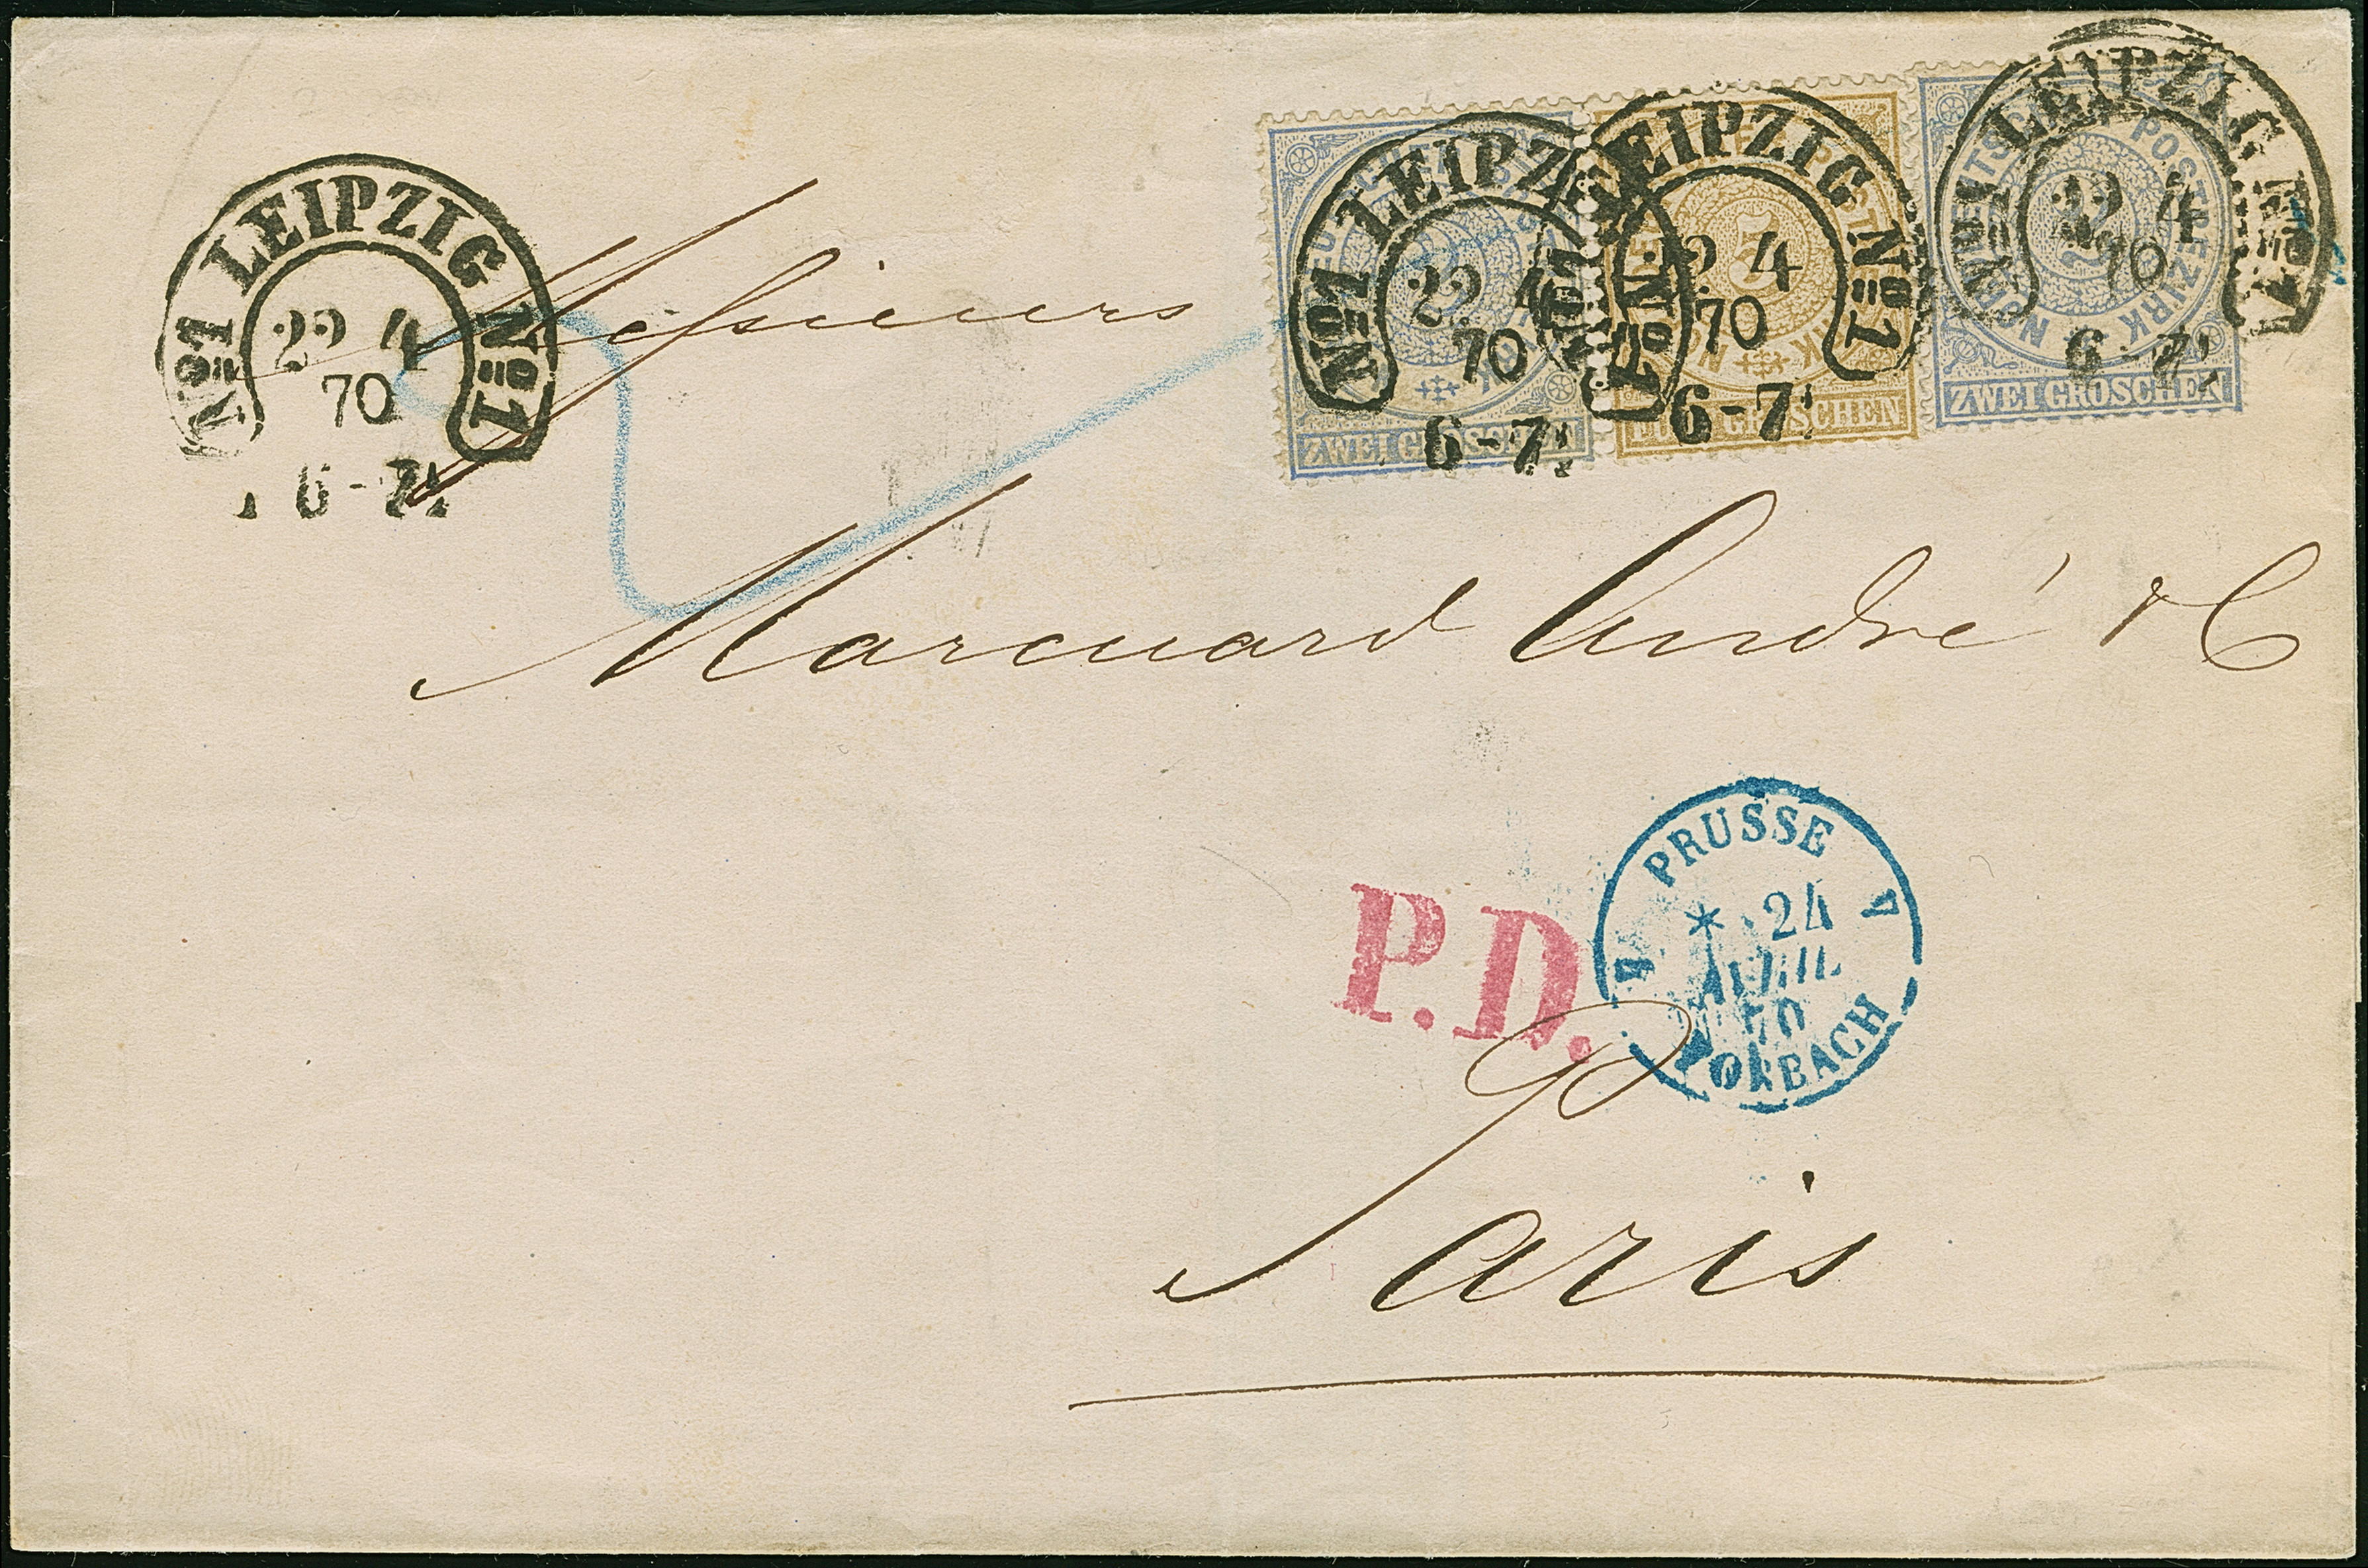 Nº1 LEIPZIG Nº1
22 4
70
6-7
NORDDEUTSCHER POSTBEZIRK
ZWEI GROSCHEN
Nº1 LEIPZIG Nº1
22 4
70
6-7
FÜNF GROSCHEN
5
Nº1 LEIPZIG Nº1
22 4
70
6-7
NORDDEUTSCHER POSTBEZIRK
2
ZWEI GROSCHEN
Nº1 LEIPZIG Nº1
22 4
70
6-7
Messieurs
Marcuard André & C
P.D.
4 PRUSSE 4
24
AVRIL
70
FORBACH
Paris